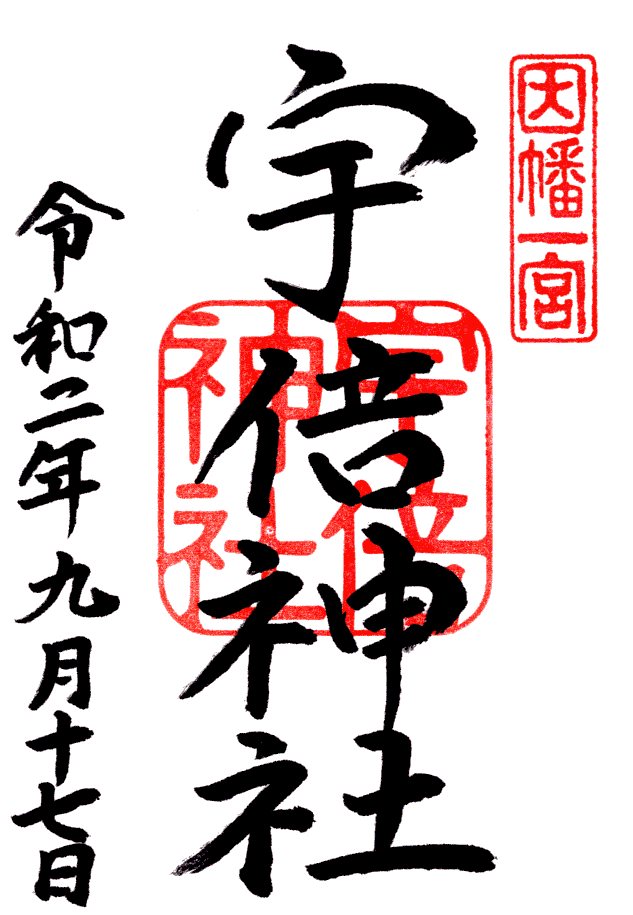 因幡一宮
宇倍神社
宇倍
神社
令和二年九月十七日